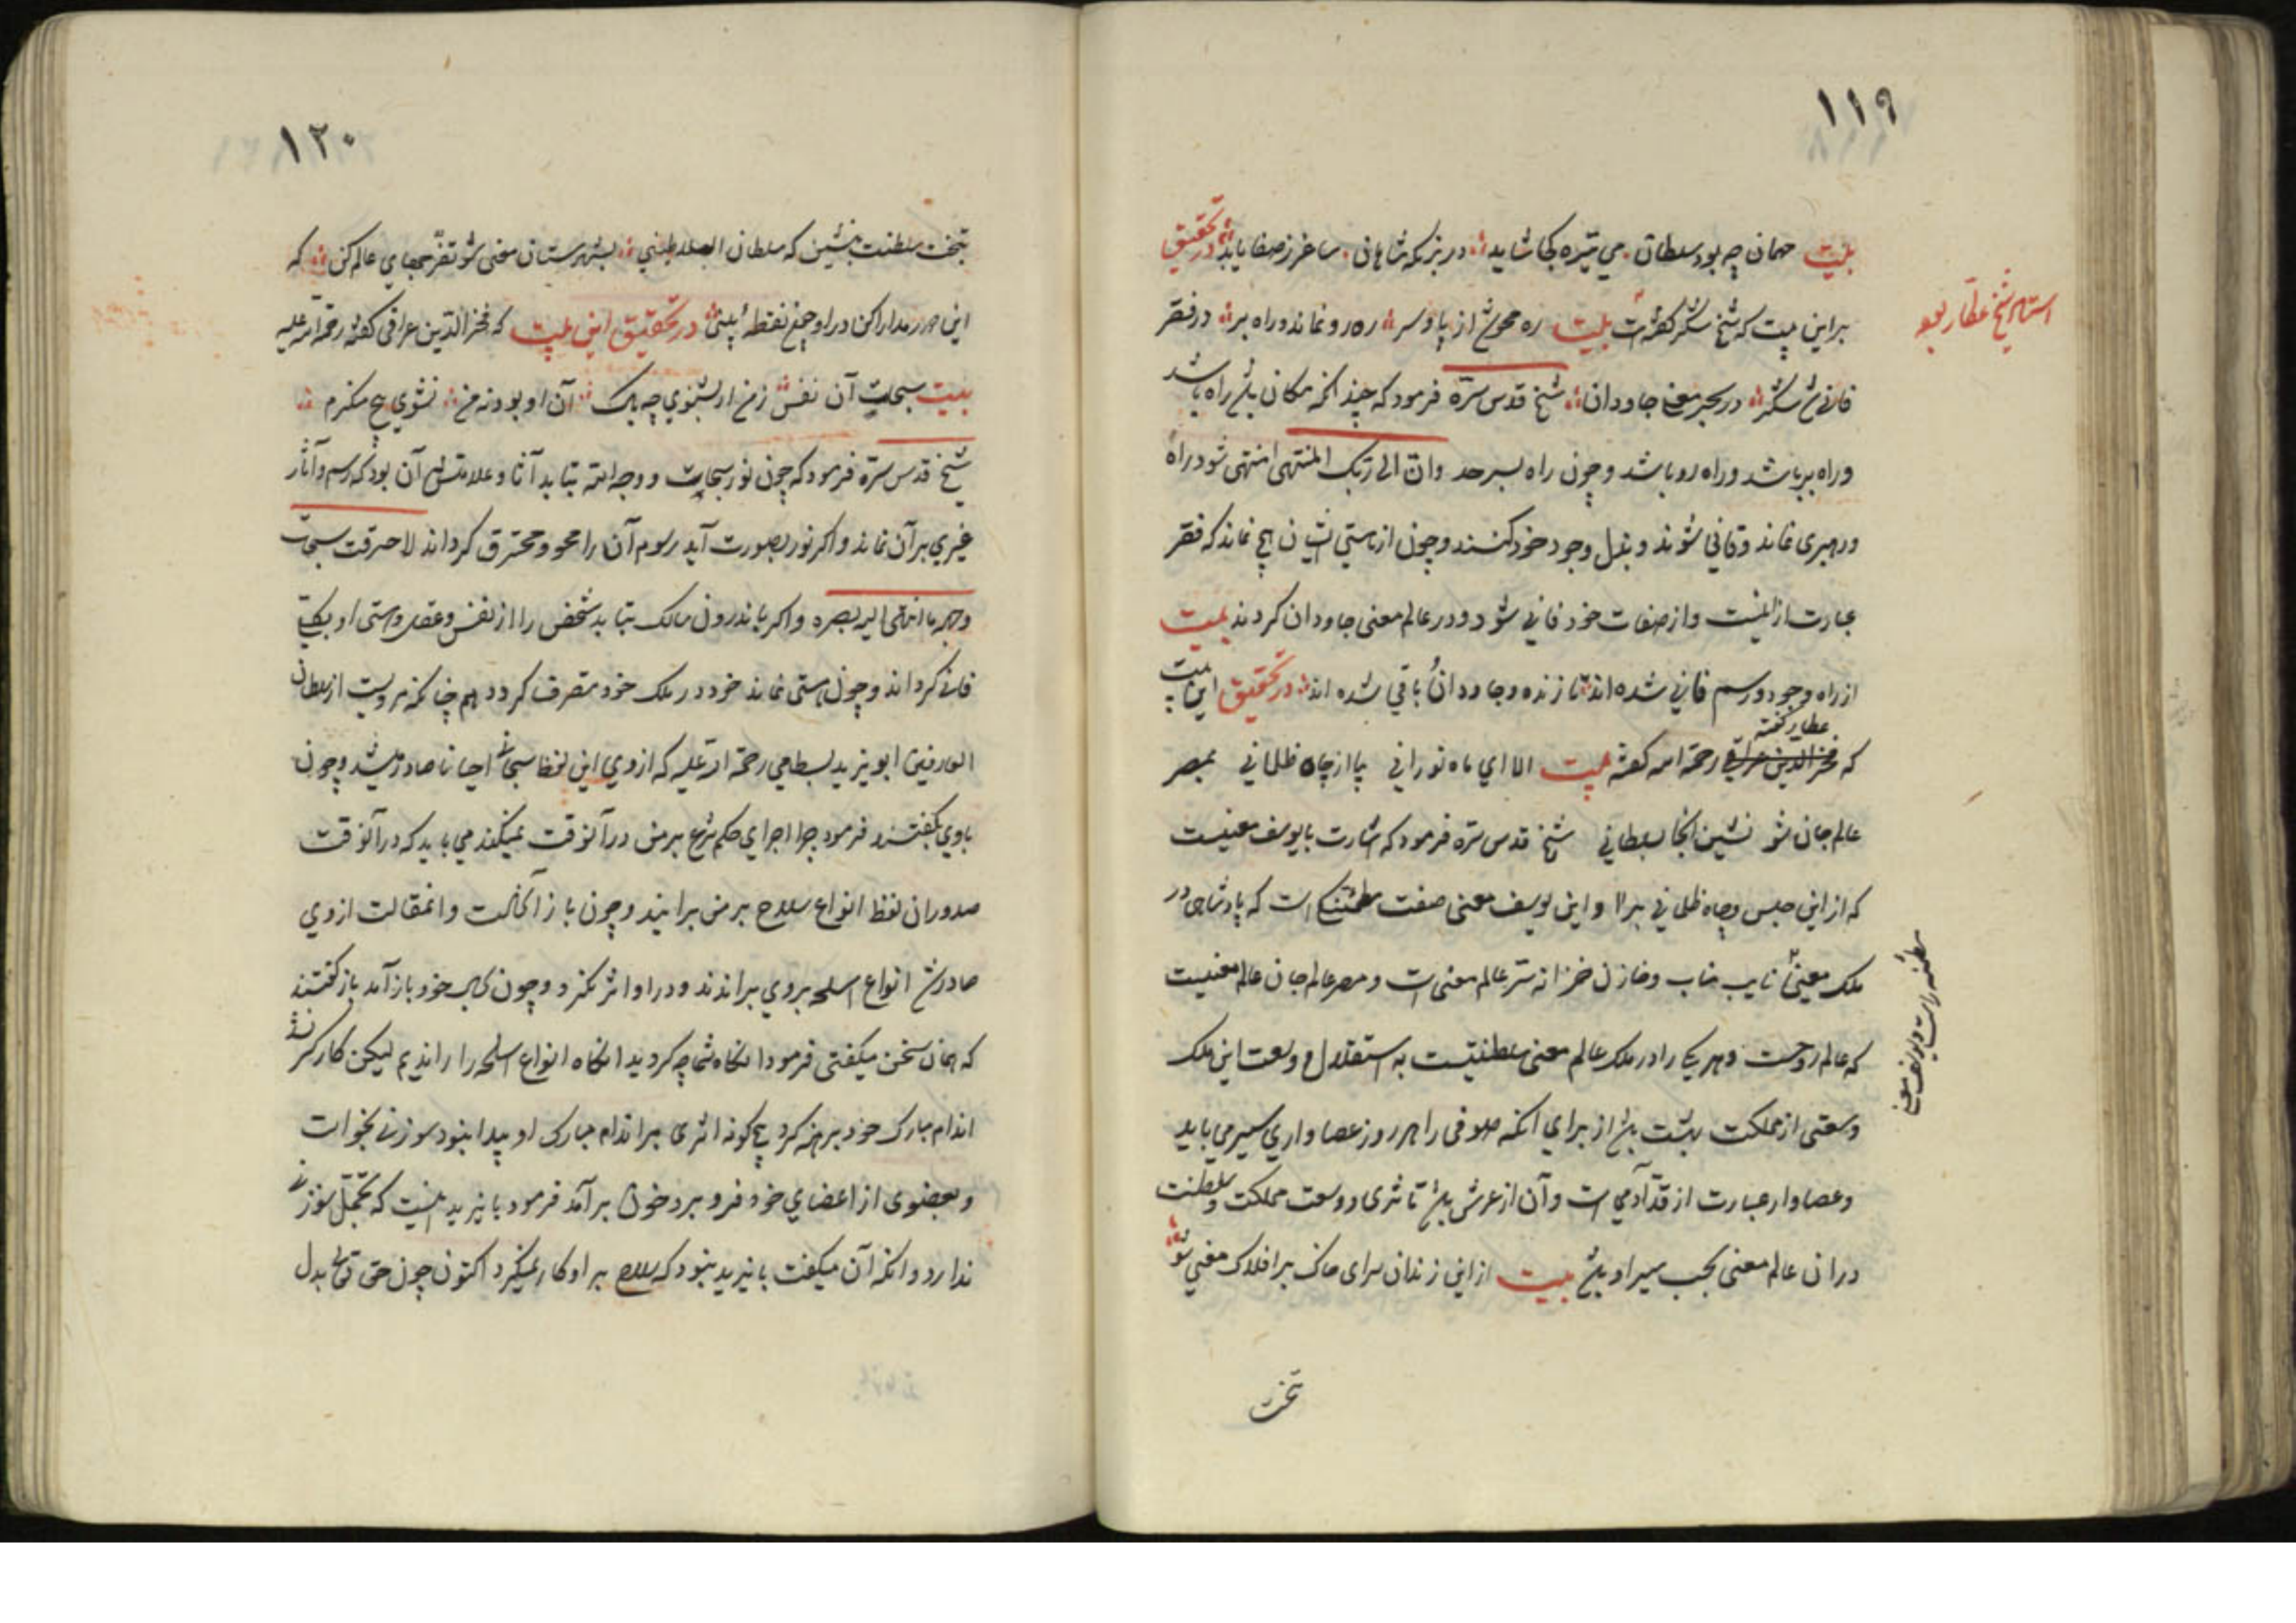 ١١٩
بیت مهمان چه بود سلطان می تیره کجا شاید در بزمکه شاهان ساغر ز صفا یابد در تحقیق
بر این بیت که شیخ شکر گفته است بیت ره محو شد از پا و سر ره رو نماند و راه بر در فقر
فانی شد شکر در بحر معنی جاودان شیخ قدس سره فرمود که چندانکه مکان باشد راه باشد
و راه بر باشد و راه رو باشد و چون راه بسر حد وان الی ربک المنتهی منتهی شود راه
و رهبری نماند و فانی شوند و بذل وجود خود کنند و چون از هستی ایشان هیچ نماند که فقر
عبارت از اینست و از صفات خود فانی شود و در عالم معنی جاودان کردند بیت
از راه وجود و رسم فانی شده اند تا زنده و جاودان باقی شده اند در تحقیق این بیت
عطار گفته
که فخر الدین عراقی رحمة الله گفته بیت الا ای ماه نورانی بیا از چاه ظلمانی بمصر
عالم جان شو نشین آنجا بسلطانی شیخ قدس سره فرمود که اشارت با یوسف معنیست
که از این حبس و چاه ظلمانی برا و این یوسف معنی صفت مطمئنگی است که پادشاهی در
ملک معنی نایب مناب و خازن خزانه سر عالم معنی است و مصر عالم جان عالم معنیست
که عالم روحست و هر یکی را در ملک عالم معنی سلطنتیست به استقلال و وسعت این ملک
وسعتی از مملکت بهشت باشد از برای انکه صوفی را هر روز عصاواری سیر می باید
و عصاوار عبارت از قد آدمی است و آن از عرش باشد تا ثری و وسعت مملکت و سلطنت
در ان عالم معنی بحسب سیر او باشد بیت از این زندان سرای خاک بر افلاک معنی شو
تخت
استاد شیخ عطار بود
مطمئنه را است و یوسف معنی
١٢٠
بتخت سلطنت بنشین که سلطان السلاطینی بشهرستان معنی شو تفرجهای عالم کن که
این در مدارا کن دراو جمع نقطه پلنی در تحقیق این بیت که فخر الدین عراقی گفته رحمة الله علیه
بیت سبحات آن نفس ز من ار بشنوی چه باک آن او بود نه من نشوی هیچ منکرم
شیخ قدس سره فرمود که چون نور سبحات و وجه الله بتابد آثار و علامتش آن بود که رسم و آثار
غیری بر آن نماند و اکر نور بصورت آید رسوم آن را محو و محترق کرداند لاحرقت سبحات
وجهه ما انتهی الیه بصره و اکر باندرون سالک بتابد شخص را از نفس و عقل و هستی او بکلی
فانی کرداند و چون هستی نماند خود در ملک خود متصرف کردد هم چنانکه مرویست از سلطان
العارفین ابو یزید بسطامی رحمة الله علیه که از وی این لفظ سبحانی احیانا صادر میشد و چون
باوی بگفتند فرمود چرا اجرای حکم شرع بر من در آنوقت نمیکنند می باید که در آنوقت
صدور ان لفظ انواع سلاح بر من برانید و چون باز آن حالت و ان مقالت از وی
صادر شد انواع اسلحه بر وی براندند و در او اثر نکرد و چون بحال خود باز آمد باز گفتند
که همان سخن میکفتی فرمود انگاه شما چه کردید انگاه انواع اسلحه را راندیم لیکن کارکر نشد
اندام مبارک خود برهنه کرد هیچ کونه اثری بر اندام مبارک او پیدا نبود سوزنی بخواست
و بعضوی از اعضای خود فرو برد خون بر آمد فرمود بایزید اینست که تحمل سوزنی
ندارد و انکه آن میکفت بایزید نبود که سلاح بر او کار نمیکرد اکنون چون حق تعالی بدل